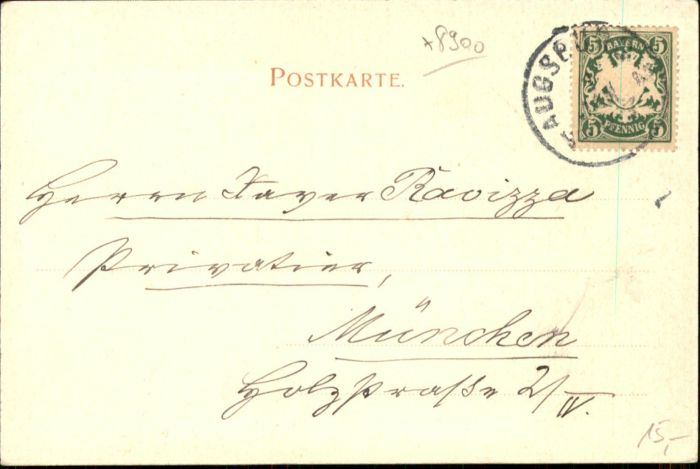 *8900
POSTKARTE.
AUGSBU
5 BAYERN 5
5 PFENNIG 5
Herrn Xaver Ravizza
Privatier,
München
Holzstraße 2/IV.
15,-